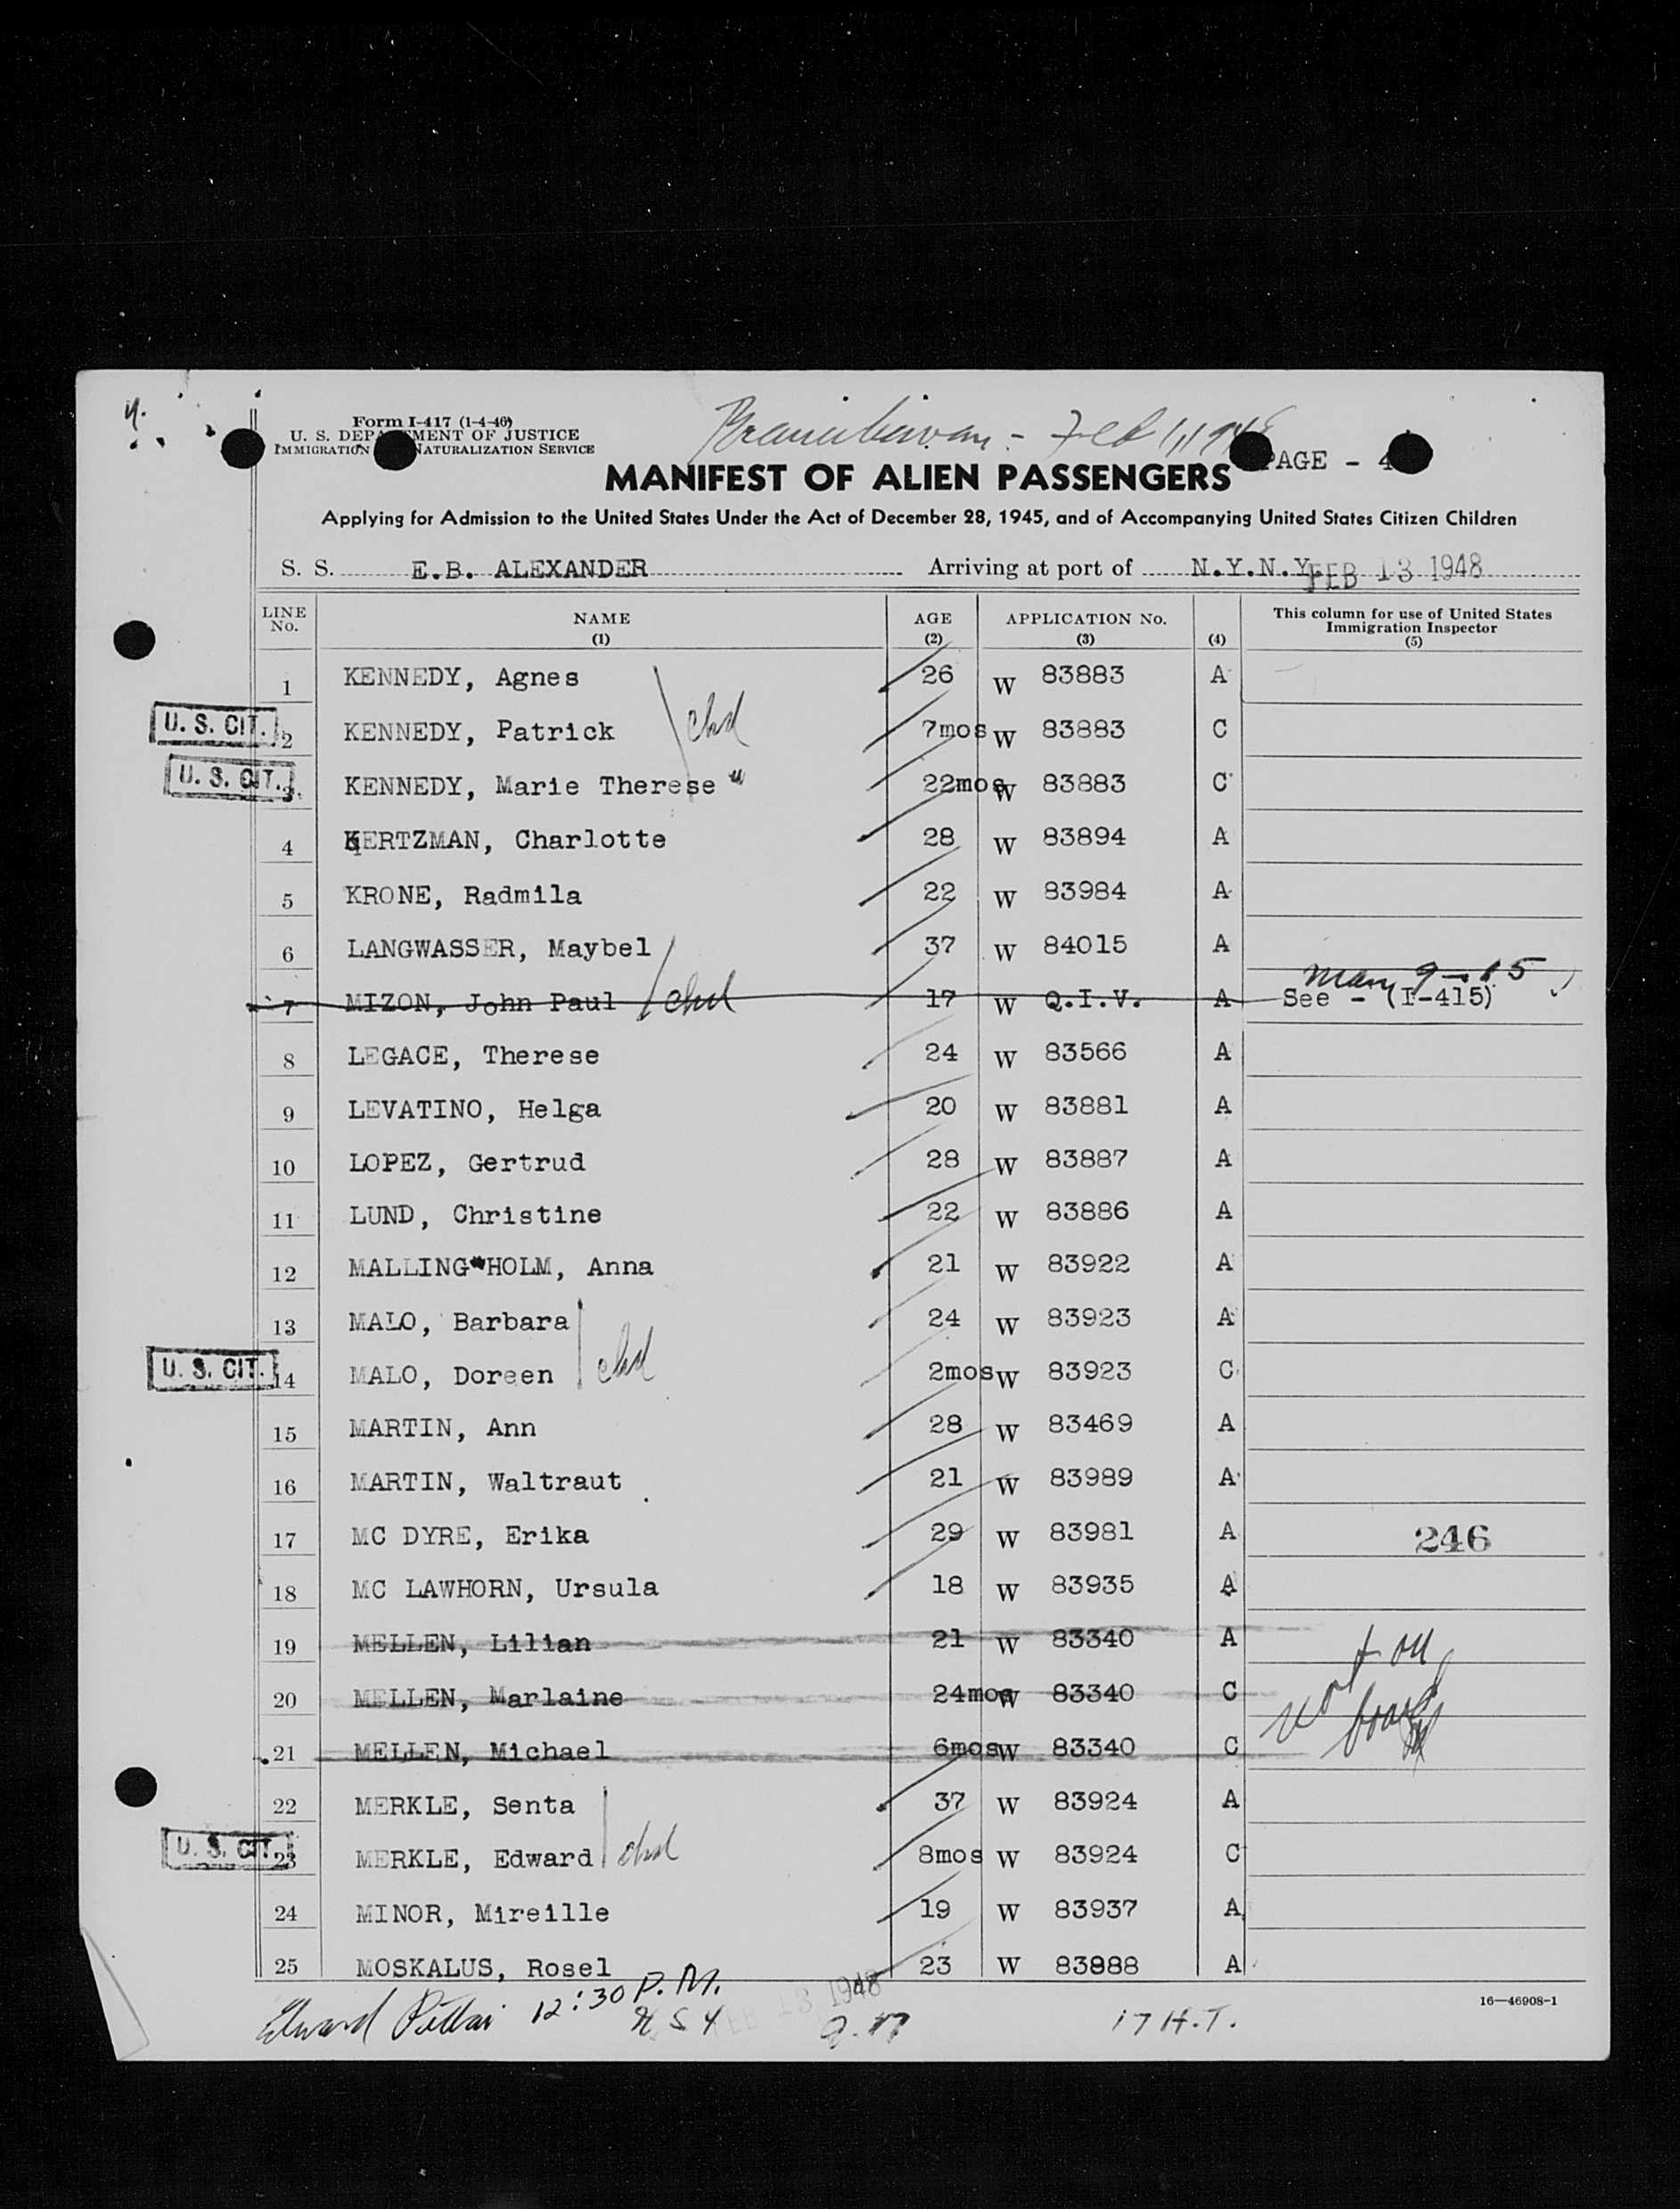 Form I-417 (1-4-46)
U. S. DEPARTMENT OF JUSTICE
IMMIGRATION NATURALIZATION SERVICE
Feb 1, 1948
PAGE - 4
MANIFEST OF ALIEN PASSENGERS
Applying for Admission to the United States Under the Act of December 28, 1945, and of Accompanying United States Citizen Children
S. S. E.B. ALEXANDER Arriving at port of N.Y.N.Y. FEB 13 1948
LINE No. NAME (1) AGE (2) APPLICATION No. (3) (4) This column for use of United States Immigration Inspector (5)
1 KENNEDY, Agnes 26 W 83883 A
U. S. CIT. 2 KENNEDY, Patrick chd 7mos W 83883 C
U. S. CIT. 3 KENNEDY, Marie Therese " 22mos W 83883 C
4 KERTZMAN, Charlotte 28 W 83894 A
5 KRONE, Radmila 22 W 83984 A
6 LANGWASSER, Maybel 37 W 84015 A
7 MIZON, John Paul chd 17 W Q.I.V. A See - (I-415)
8 LEGACE, Therese 24 W 83566 A
9 LEVATINO, Helga 20 W 83881 A
10 LOPEZ, Gertrud 28 W 83887 A
11 LUND, Christine 22 W 83886 A
12 MALLING-HOLM, Anna 21 W 83922 A
13 MALO, Barbara 24 W 83923 A
U. S. CIT. 14 MALO, Doreen chd 2mos W 83923 C
15 MARTIN, Ann 28 W 83469 A
16 MARTIN, Waltraut 21 W 83989 A
17 MC DYRE, Erika 29 W 83981 A 246
18 MC LAWHORN, Ursula 18 W 83935 A
19 MELLEN, Lilian 21 W 83340 A not on
20 MELLEN, Marlaine 24mos W 83340 C board
21 MELLEN, Michael 6mos W 83340 C
22 MERKLE, Senta 37 W 83924 A
U. S. CIT. 23 MERKLE, Edward chd 8mos W 83924 C
24 MINOR, Mireille 19 W 83937 A
25 MOSKALUS, Rosel 23 W 83888 A
16—46908-1
Edward 12:30 P.M. FEB 13 1948 17 H.T.